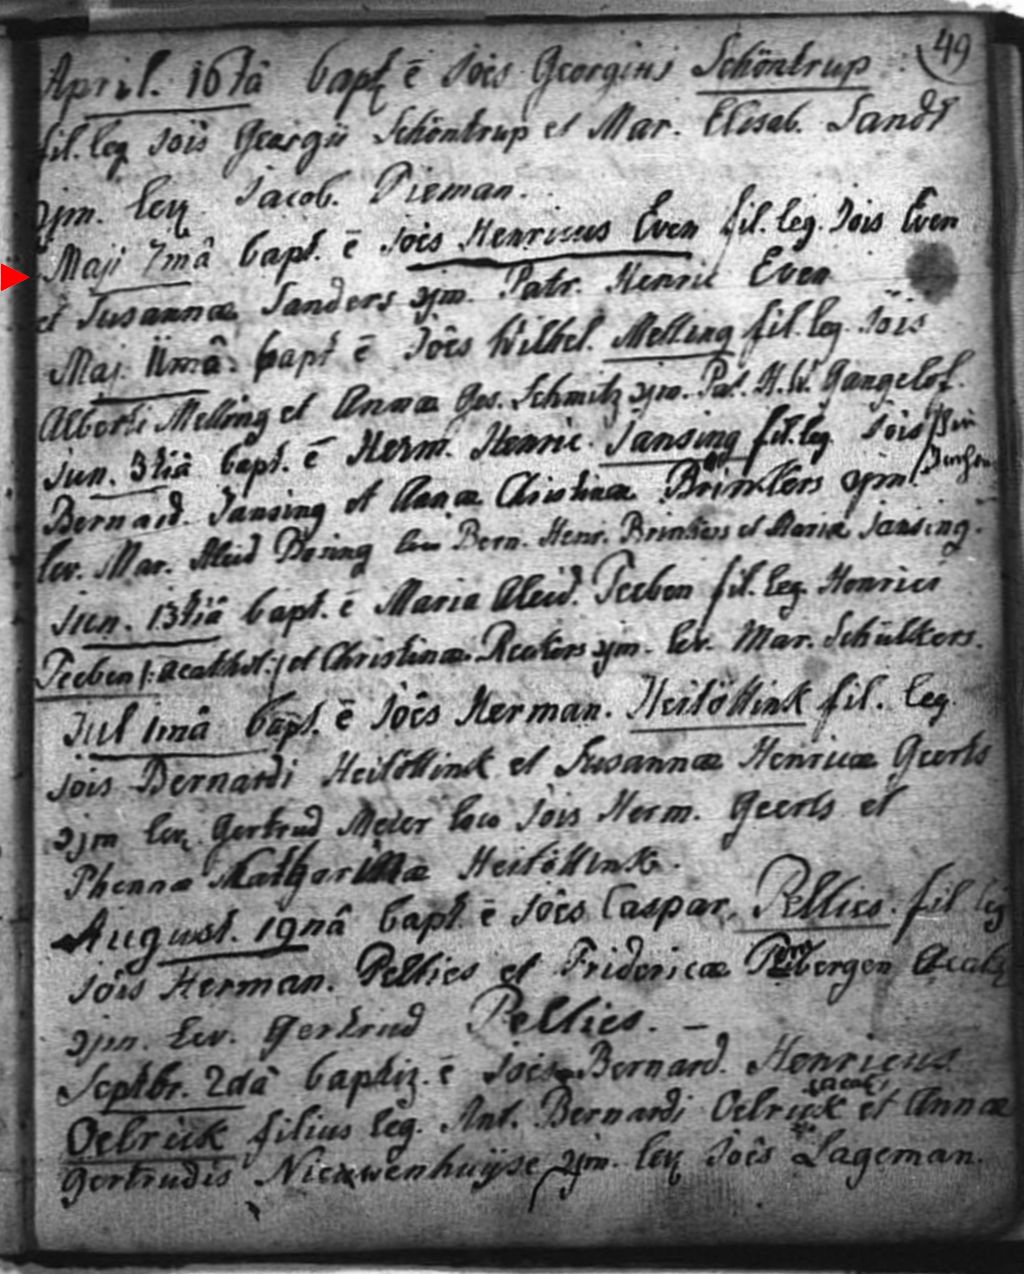 49
April. 16tâ bapt ē Jois Georgius Schöntrup
fil. leg Jois Georgii Schöntrup et Mar. Elisab. Sandt
Jacob. Pieman.
Maji 7mâ bapt. ē Joês Henricus Even fil. leg. Jois Even
et Susannæ Sanders Patr. Henric Even
Maj. 11mâ. bapt ē Joês Wilhel. Melling fil. leg. Jois
Alberti Melling et Annæ Ges. Schmitz Pat. H. W. Gangelof.
Jun. 3tiâ bapt. ē Herm. Henric. Jansing fil. leg Jois
Bernard. Jansing et Annæ Christinæ Brinkers
lev. Mar. Aleid Bern. Henr. Brinkers et Maria Jansing.
Jun. 13tiâ bapt. ē Maria Aleid. Teeben fil. leg. Henrici
Teeben /: acathol: / et Christinæ Reakers lev. Mar. Schülkers.
Jul 1mâ bapt. ē Joês Herman. Heitöttink fil. leg.
Jois Bernardi Heitöttink et Susannæ Henricæ Geerts
lev. Gertrud Meier loco Jois Herm. Geerts et
Phennæ Katharinæ Heitöttink.
August. 19nâ bapt. ē Joês Caspar. Pellies. fil leg
Jois Herman. Pellies et Fridericæ
lev. Gertrud Pellies. –
Septbr. 2dâ baptiz. ē Joês Bernard. Henricus
Oelrick filius leg. Ant. Bernardi Oelrick et Annæ
Gertrudis Nieuwenhuijse Joês Lageman.